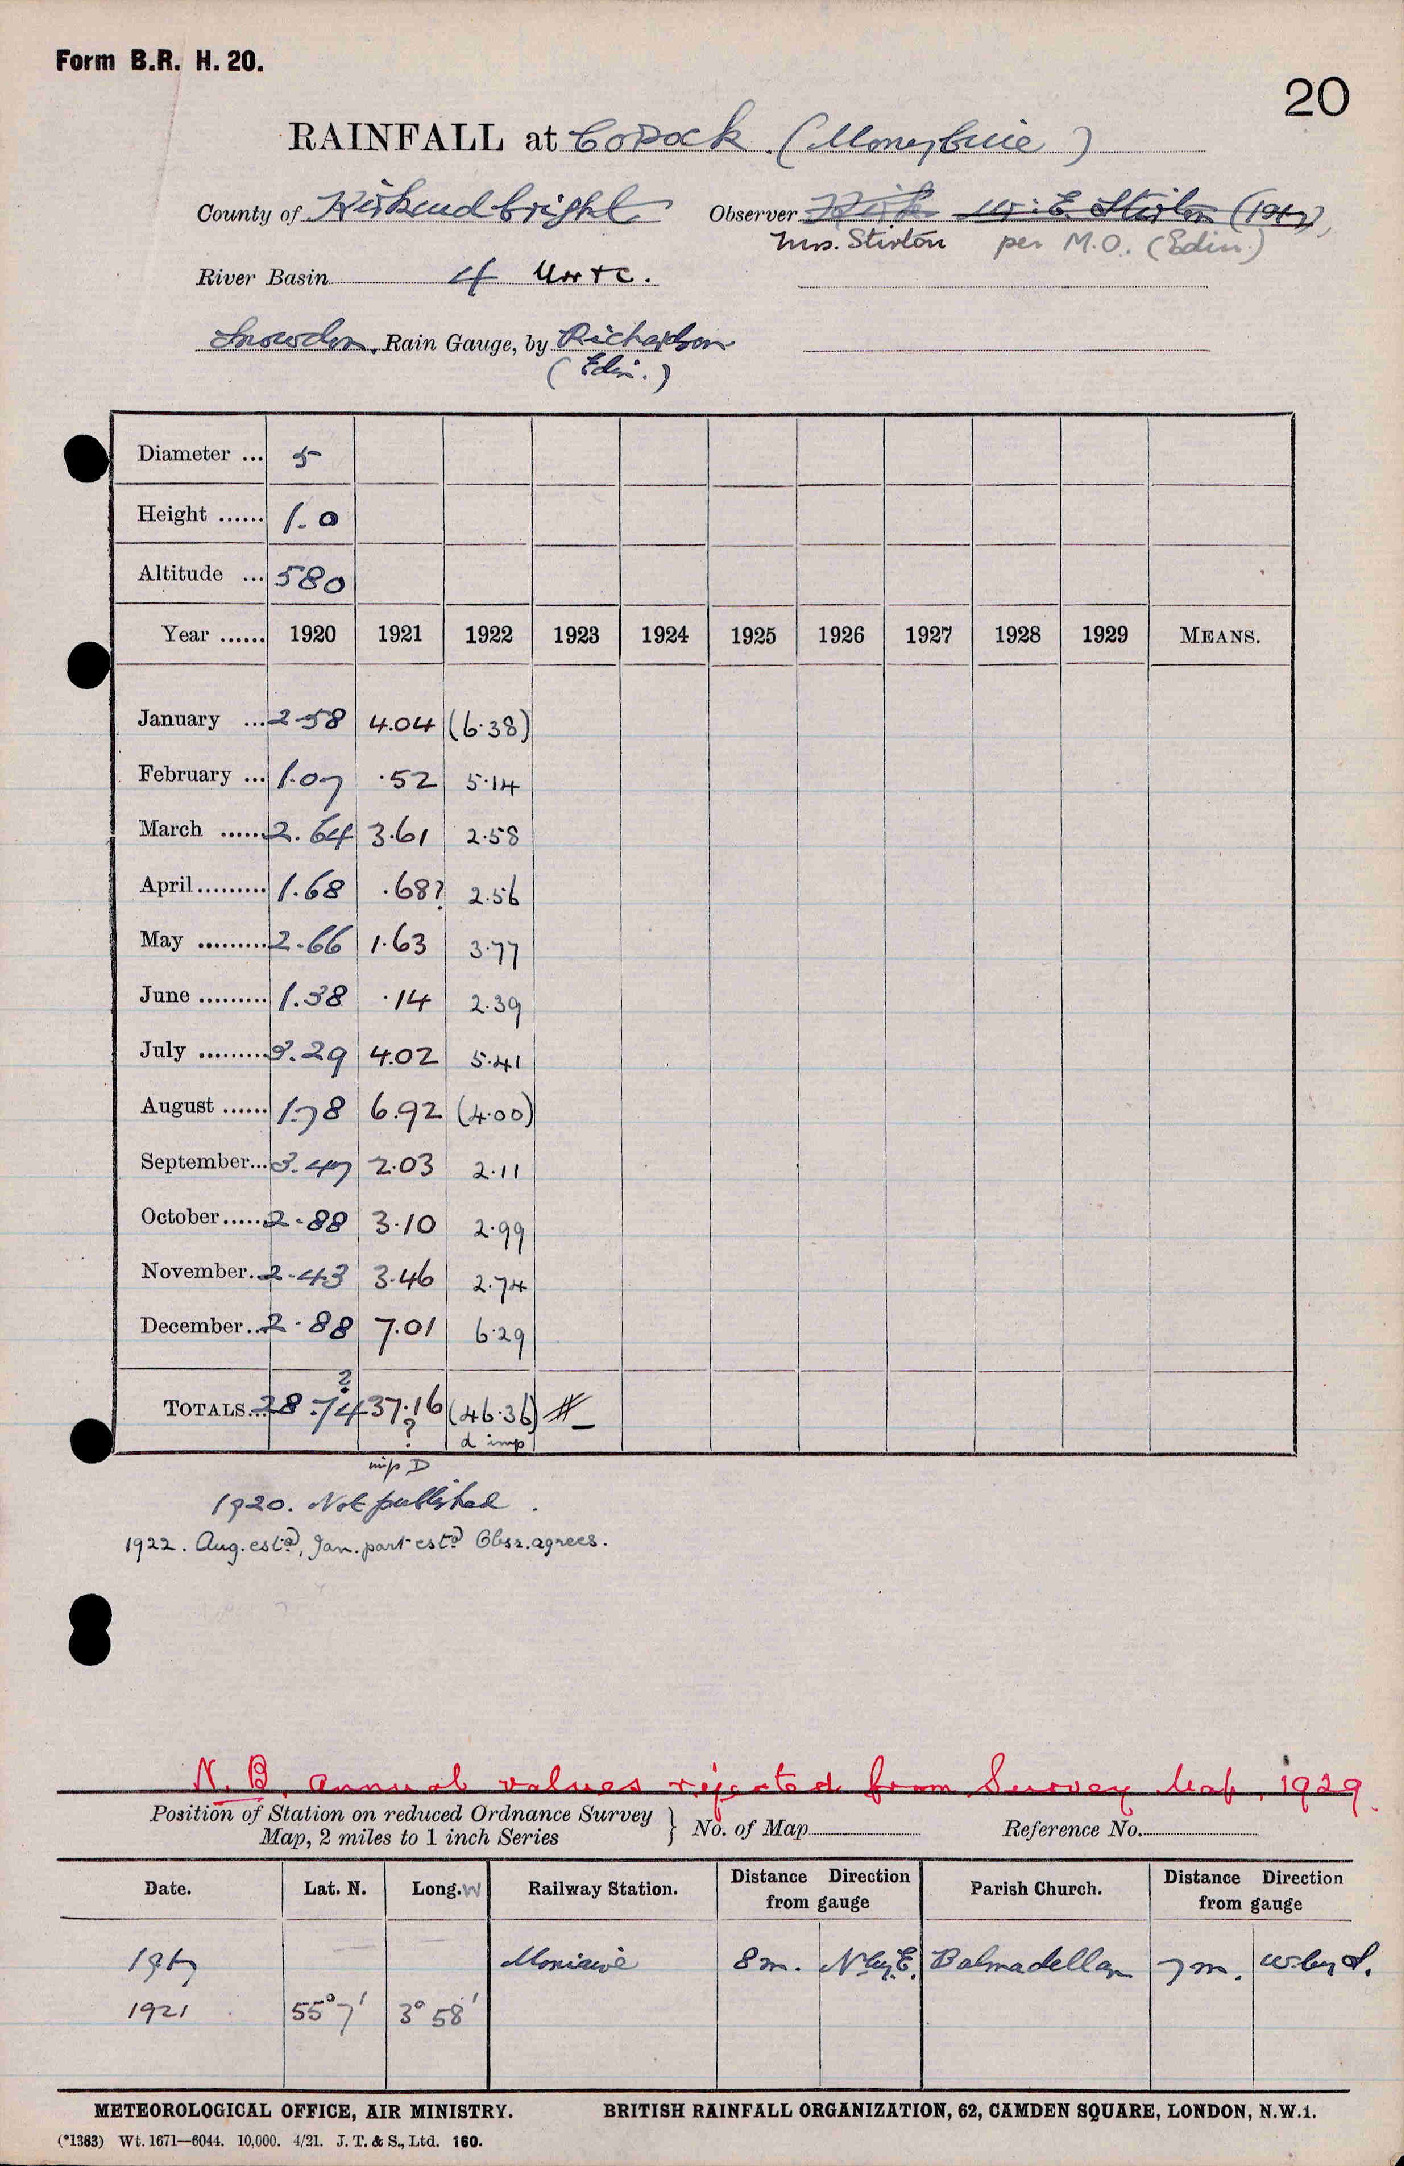 Form B.R. H. 20.
20
RAINFALL at Cossock (Moneybuie)
County of Kirkcudbright Observer W. E. Stirton (1917),
Mrs. Stirton per M.O. (Edin.)
River Basin 4
Snowdon Rain Gauge, by Richardson
(Edin.)
Diameter ... 5
Height ...... 1.0
Altitude ... 580
Year ...... 1920 1921 1922 1923 1924 1925 1926 1927 1928 1929 MEANS.
January ... 2.58 4.04 (6.38)
February ... 1.07 .52 5.14
March ...... 2.64 3.61 2.58
April ......... 1.68 .68? 2.56
May ......... 2.66 1.63 3.77
June ......... 1.38 .14 2.39
July ......... 3.29 4.02 5.41
August ...... 1.78 6.92 (4.00)
September... 3.47 2.03 2.11
October ..... 2.88 3.10 2.99
November.. 2.43 3.46 2.74
December.. 2.88 7.01 6.29
?
TOTALS... 28.74 37.16 (46.36) #
? d imp
imp D
1920. Not published.
1922. Aug. estd, Jan. part estd Obsr. agrees.
N.B. Annual values rejected from Survey Map, 1929.
Position of Station on reduced Ordnance Survey
Map, 2 miles to 1 inch Series } No. of Map Reference No.
Date. Lat. N. Long. W Railway Station. Distance Direction from gauge Parish Church. Distance Direction from gauge
1917 Moniaive 8 m. N by E. Balmaclellan 7 m. W. by S.
1921 55° 7' 3° 58'
METEOROLOGICAL OFFICE, AIR MINISTRY. BRITISH RAINFALL ORGANIZATION, 62, CAMDEN SQUARE, LONDON, N.W.1.
(*1383) Wt. 1671—6044. 10,000. 4/21. J. T. & S., Ltd. 160.